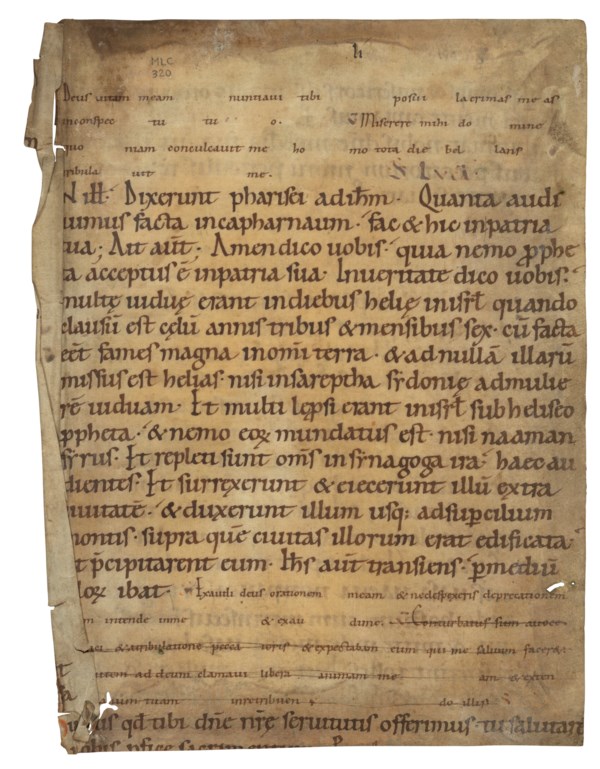 MLC
320
Deus uitam meam nuntiaui tibi posui lacrimas me as
inconspec tu tu o. Miserere mihi do mine
quo niam conculcauit me ho mo tota die bel lans
tribula uit me. S Luca
N ill. Dixerunt pharisei ad ihm. Quanta audi
uimus facta incapharnaum. fac & hic inpatria
tua; Ait aut; Amen dico uobis. quia nemo pphe
ta acceptus ē inpatria sua. Inueritate dico uobis.
multę uiduę erant indiebus helię inisrl quando
clausū est cęlū annis tribus & mensibus sex. cū facta
eēt fames magna inomi terra. & ad nullā illarū
missus est helias. nisi insareptha sydonię admulie
rē uiduam. Et multi lepsi erant inisrl sub heliseo
ppheta. & nemo eoꝝ mundatus est. nisi naaman
syrus. Et repleti sunt oms in synagoga ira. haec au
dientes. Et surrexerunt & eiecerunt illū extra
ciuitatē. & duxerunt illum usq; adsupcilium
montis. supra quē ciuitas illorum erat edificata.
ut pcipitarent eum. Ihs aūt transiens. pmediū
illoꝝ ibat. Exaudi deus orationem meam & nedespexeris deprecationem
m intende inme & exau dime. Conturbatus sum auoce
& atribulatione pecca toris & expectabam eum qui me saluum faceret
autem ad deum clamaui libera animam me am & exten
suam inretribuen do illis
qd tibi dne nrę seruitutis offerimus. tu salutare
nobis pfice sacramentum.